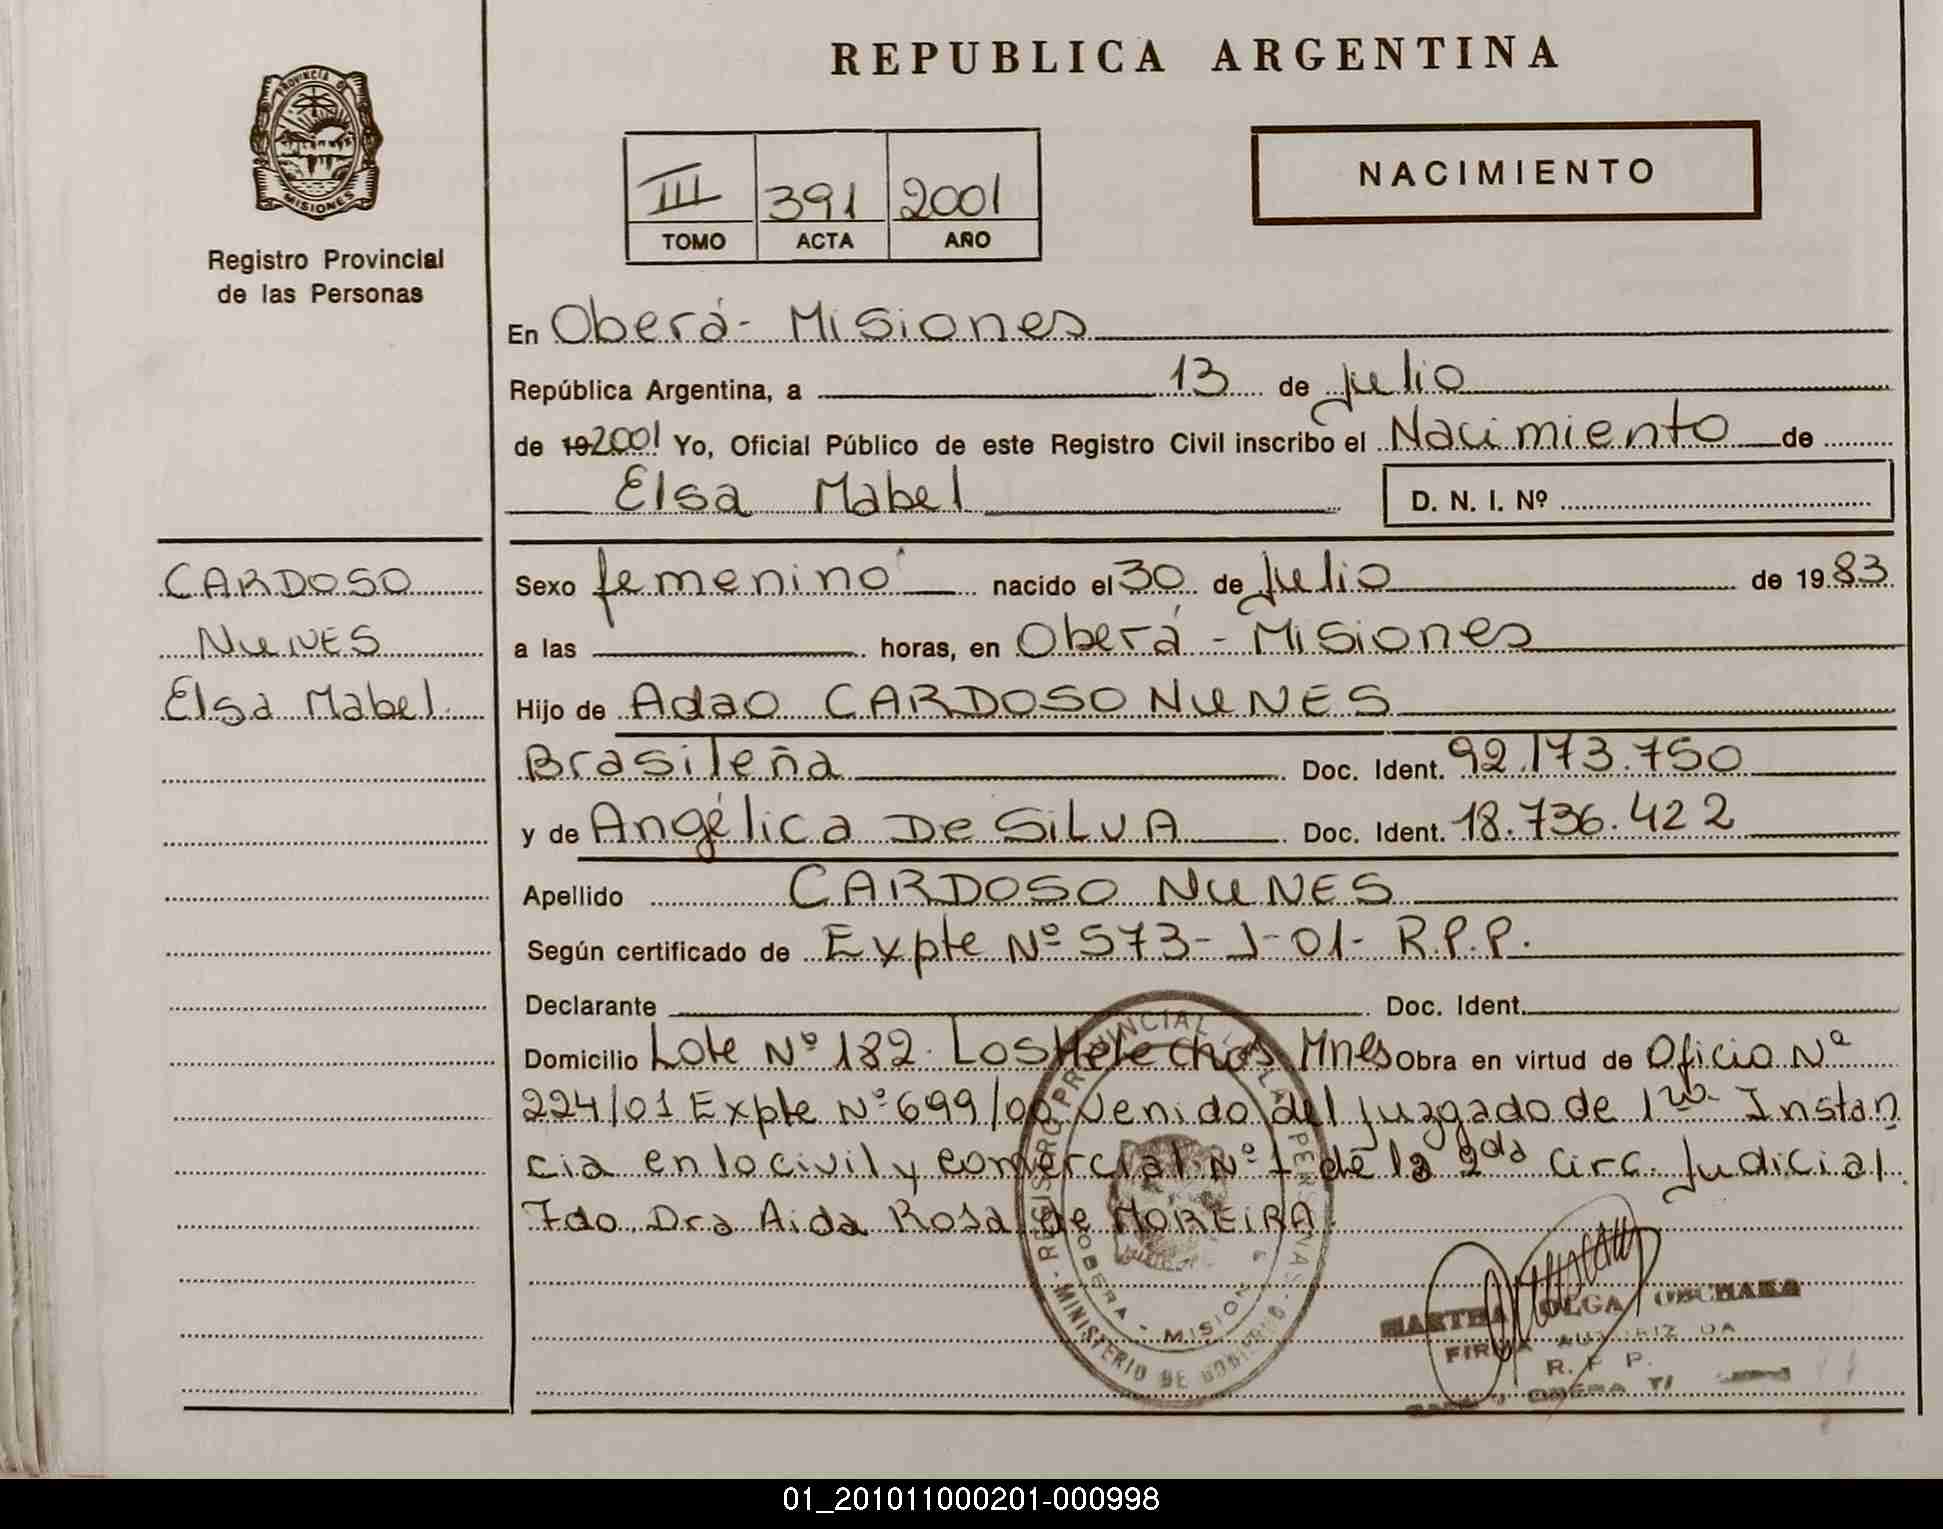 REPUBLICA ARGENTINA
PROVINCIA DE
MISIONES
Registro Provincial
de las Personas
III 391 2001
TOMO ACTA AÑO
NACIMIENTO
En Oberá - Misiones
República Argentina, a 13 de Julio
de 19 2001 Yo, Oficial Público de este Registro Civil inscribo el Nacimiento de
Elsa Mabel D. N. I. Nº
CARDOSO
NUNES
Elsa Mabel
Sexo femenino nacido el 30 de Julio de 19 83
a las horas, en Oberá - Misiones
Hijo de Adao CARDOSO NUNES
Brasileña Doc. Ident. 92.173.750
y de Angélica De SILVA Doc. Ident. 18.736.422
Apellido CARDOSO NUNES
Según certificado de Expte Nº 573-J-01- R.P.P.
Declarante Doc. Ident.
Domicilio Lote Nº 182. Los Helechos Mnes Obra en virtud de Oficio Nº
224/01 Expte Nº 699/00 Venido del Juzgado de 1ra Instan
cia en lo civil y comercial Nº 1 de la 2da Circ. Judicial
Fdo. Dra Aida Rosa de MOREIRA.
REGISTRO PROVINCIAL DE LAS PERSONAS
OBERA - MISIONES
MINISTERIO DE GOBIERNO
MARTHA OLGA
FIRMA AUTORIZADA
R. P. P.
OBERA
01_201011000201-000998